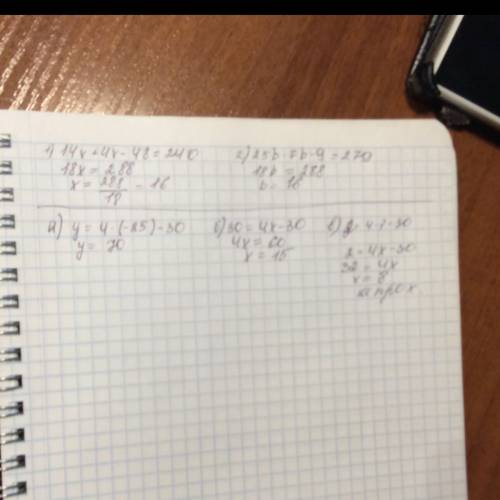 1) 14x+4x-48=240
18x = 288
x = 288/18 = 16
2) 25b-7b-9=270
18b = 288
b = 16
а) y = 4·(-25)-30
y = 70
б) 30 = 4x-30
4x = 60
x = 15
в)
2 = 4x-30
32 = 4x
x = 8